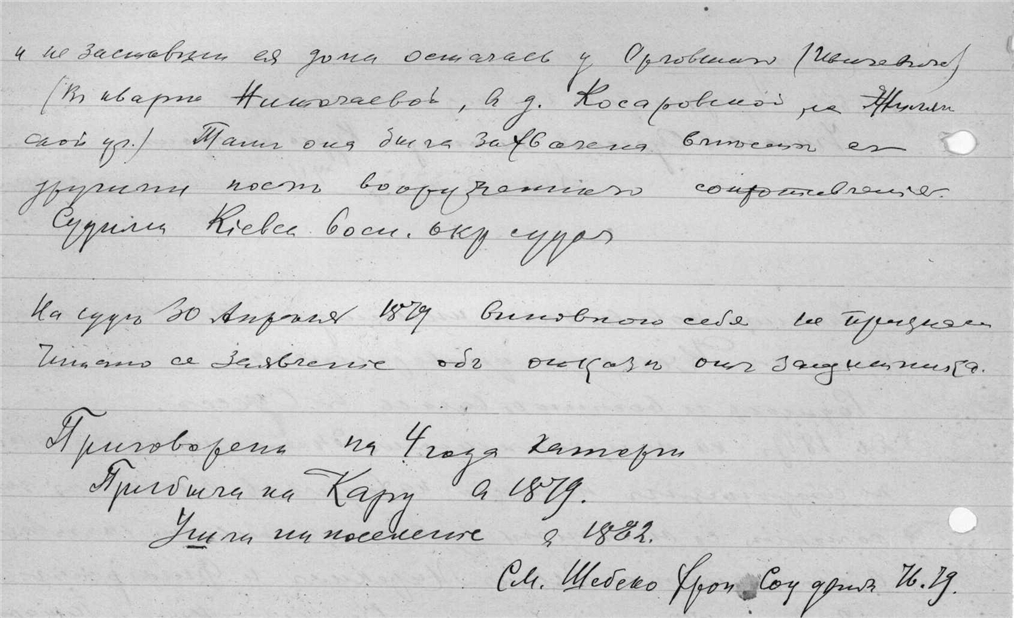 и не заставши ея дома осталась у Орловского (Ивичевича)
(Въ кварт Николаевой, в д. Косаровской, на Жилян
ской ул.) Тамъ она была захвачена вместе съ
другими после вооруженнаго сопротивления.
Судили Кіевск воен. окр судом
На суде 30 Апреля 1879 виновною себя не признала
Читано ее заявление объ отказе отъ защитника.
Приговорена на 4 года каторги
Прибыла на Кару в 1879.
Ушла на поселение в 1882.
См. Шебеко Хрон Соц движ 76.79.